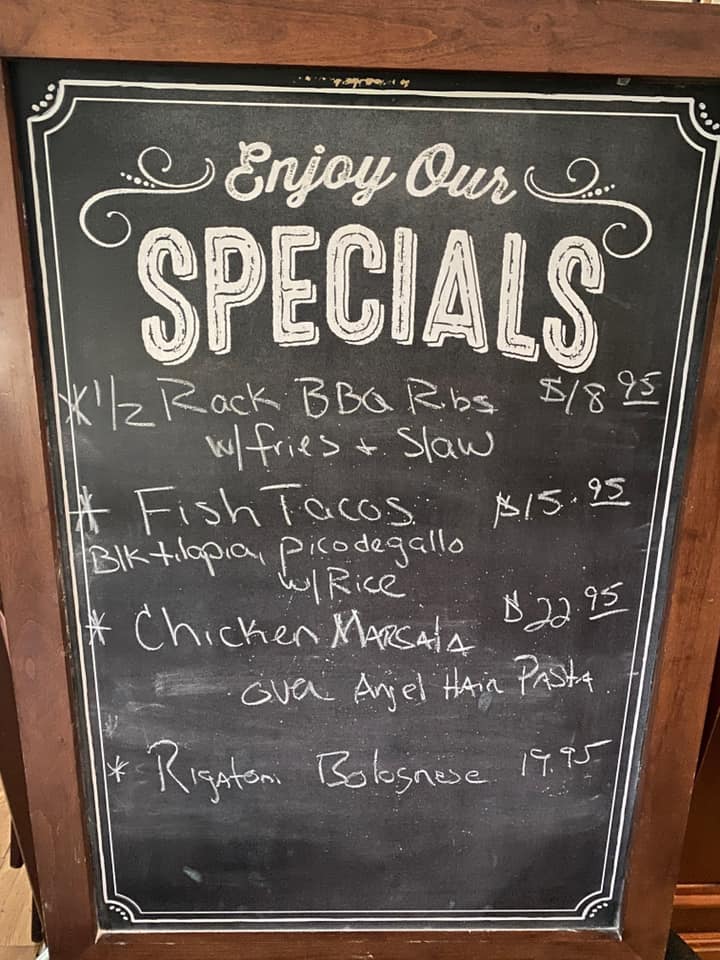 Enjoy Our
SPECIALS
* 1/2 Rack BBQ Ribs $18 95
w/fries + Slaw
* Fish Tacos $15.95
Blk tilapia, pico de gallo
w/ Rice
* Chicken MARSALA $22 95
over Angel HAIR PASTA
* Rigatoni Bolognese 19.95